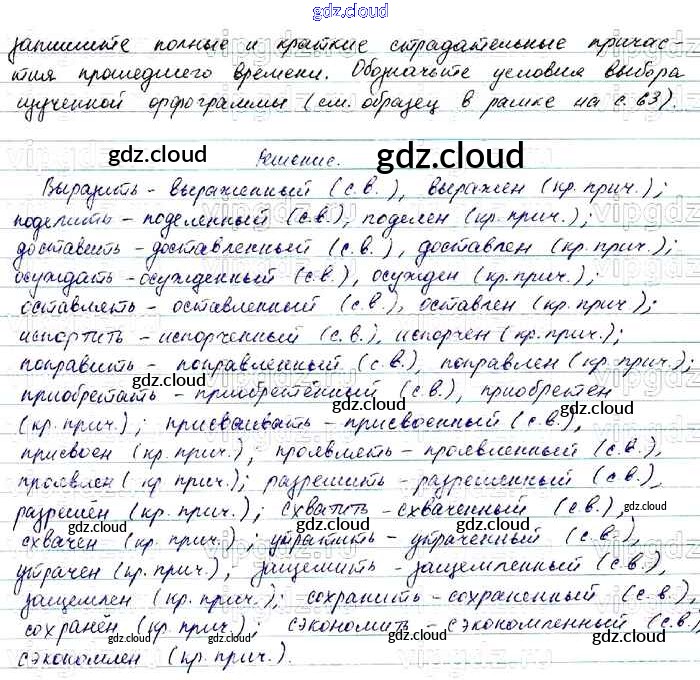 gdz.cloud
запишите полные и краткие страдательные причас-
тия прошедшего времени. Обозначьте условия выбора
изученной орфограммы (см. образец в рамке на с. 63).
gdz.cloud Решение. gdz.cloud
Выразить - выраженный (с.в.), выражен (кр. прич.);
поделить - поделенный (с.в.), поделен (кр. прич.);
доставить - доставленный (с.в.), доставлен (кр. прич.);
осуждать - осужденный (с.в.), осужден (кр. прич.);
оставлять - оставленный (с.в.), оставлен (кр. прич);
испортить - испорченный (с.в.), испорчен (кр. прич.);
поправить - поправленный (с.в.), поправлен (кр. прич.);
gdz.cloud gdz.cloud
приобретать - приобретённый (с.в.), приобретен
gdz.cloud gdz.cloud
(кр. прич.); присваивать - присвоенный (с.в.),
присвоен (кр. прич.); проявлять - проявленный (с.в.),
проявлен (кр прич.); разрешить - разрешенный (с.в.),
разрешён (кр. прич.); схватить - схваченный (с.в.),
gdz.cloud gdz.cloud gdz.cloud
схвачен (кр. прич.); утратить - утраченный (с.в.),
утрачен (кр. прич.); защемить - защемленный (с.в.),
защемлен (кр. прич.); сохранить - сохраненный (с.в.),
сохранён (кр. прич.); сэкономить - сэкономленный (с.в.)
gdz.cloud gdz.cloud gdz.cloud
сэкономлен (кр. прич.).